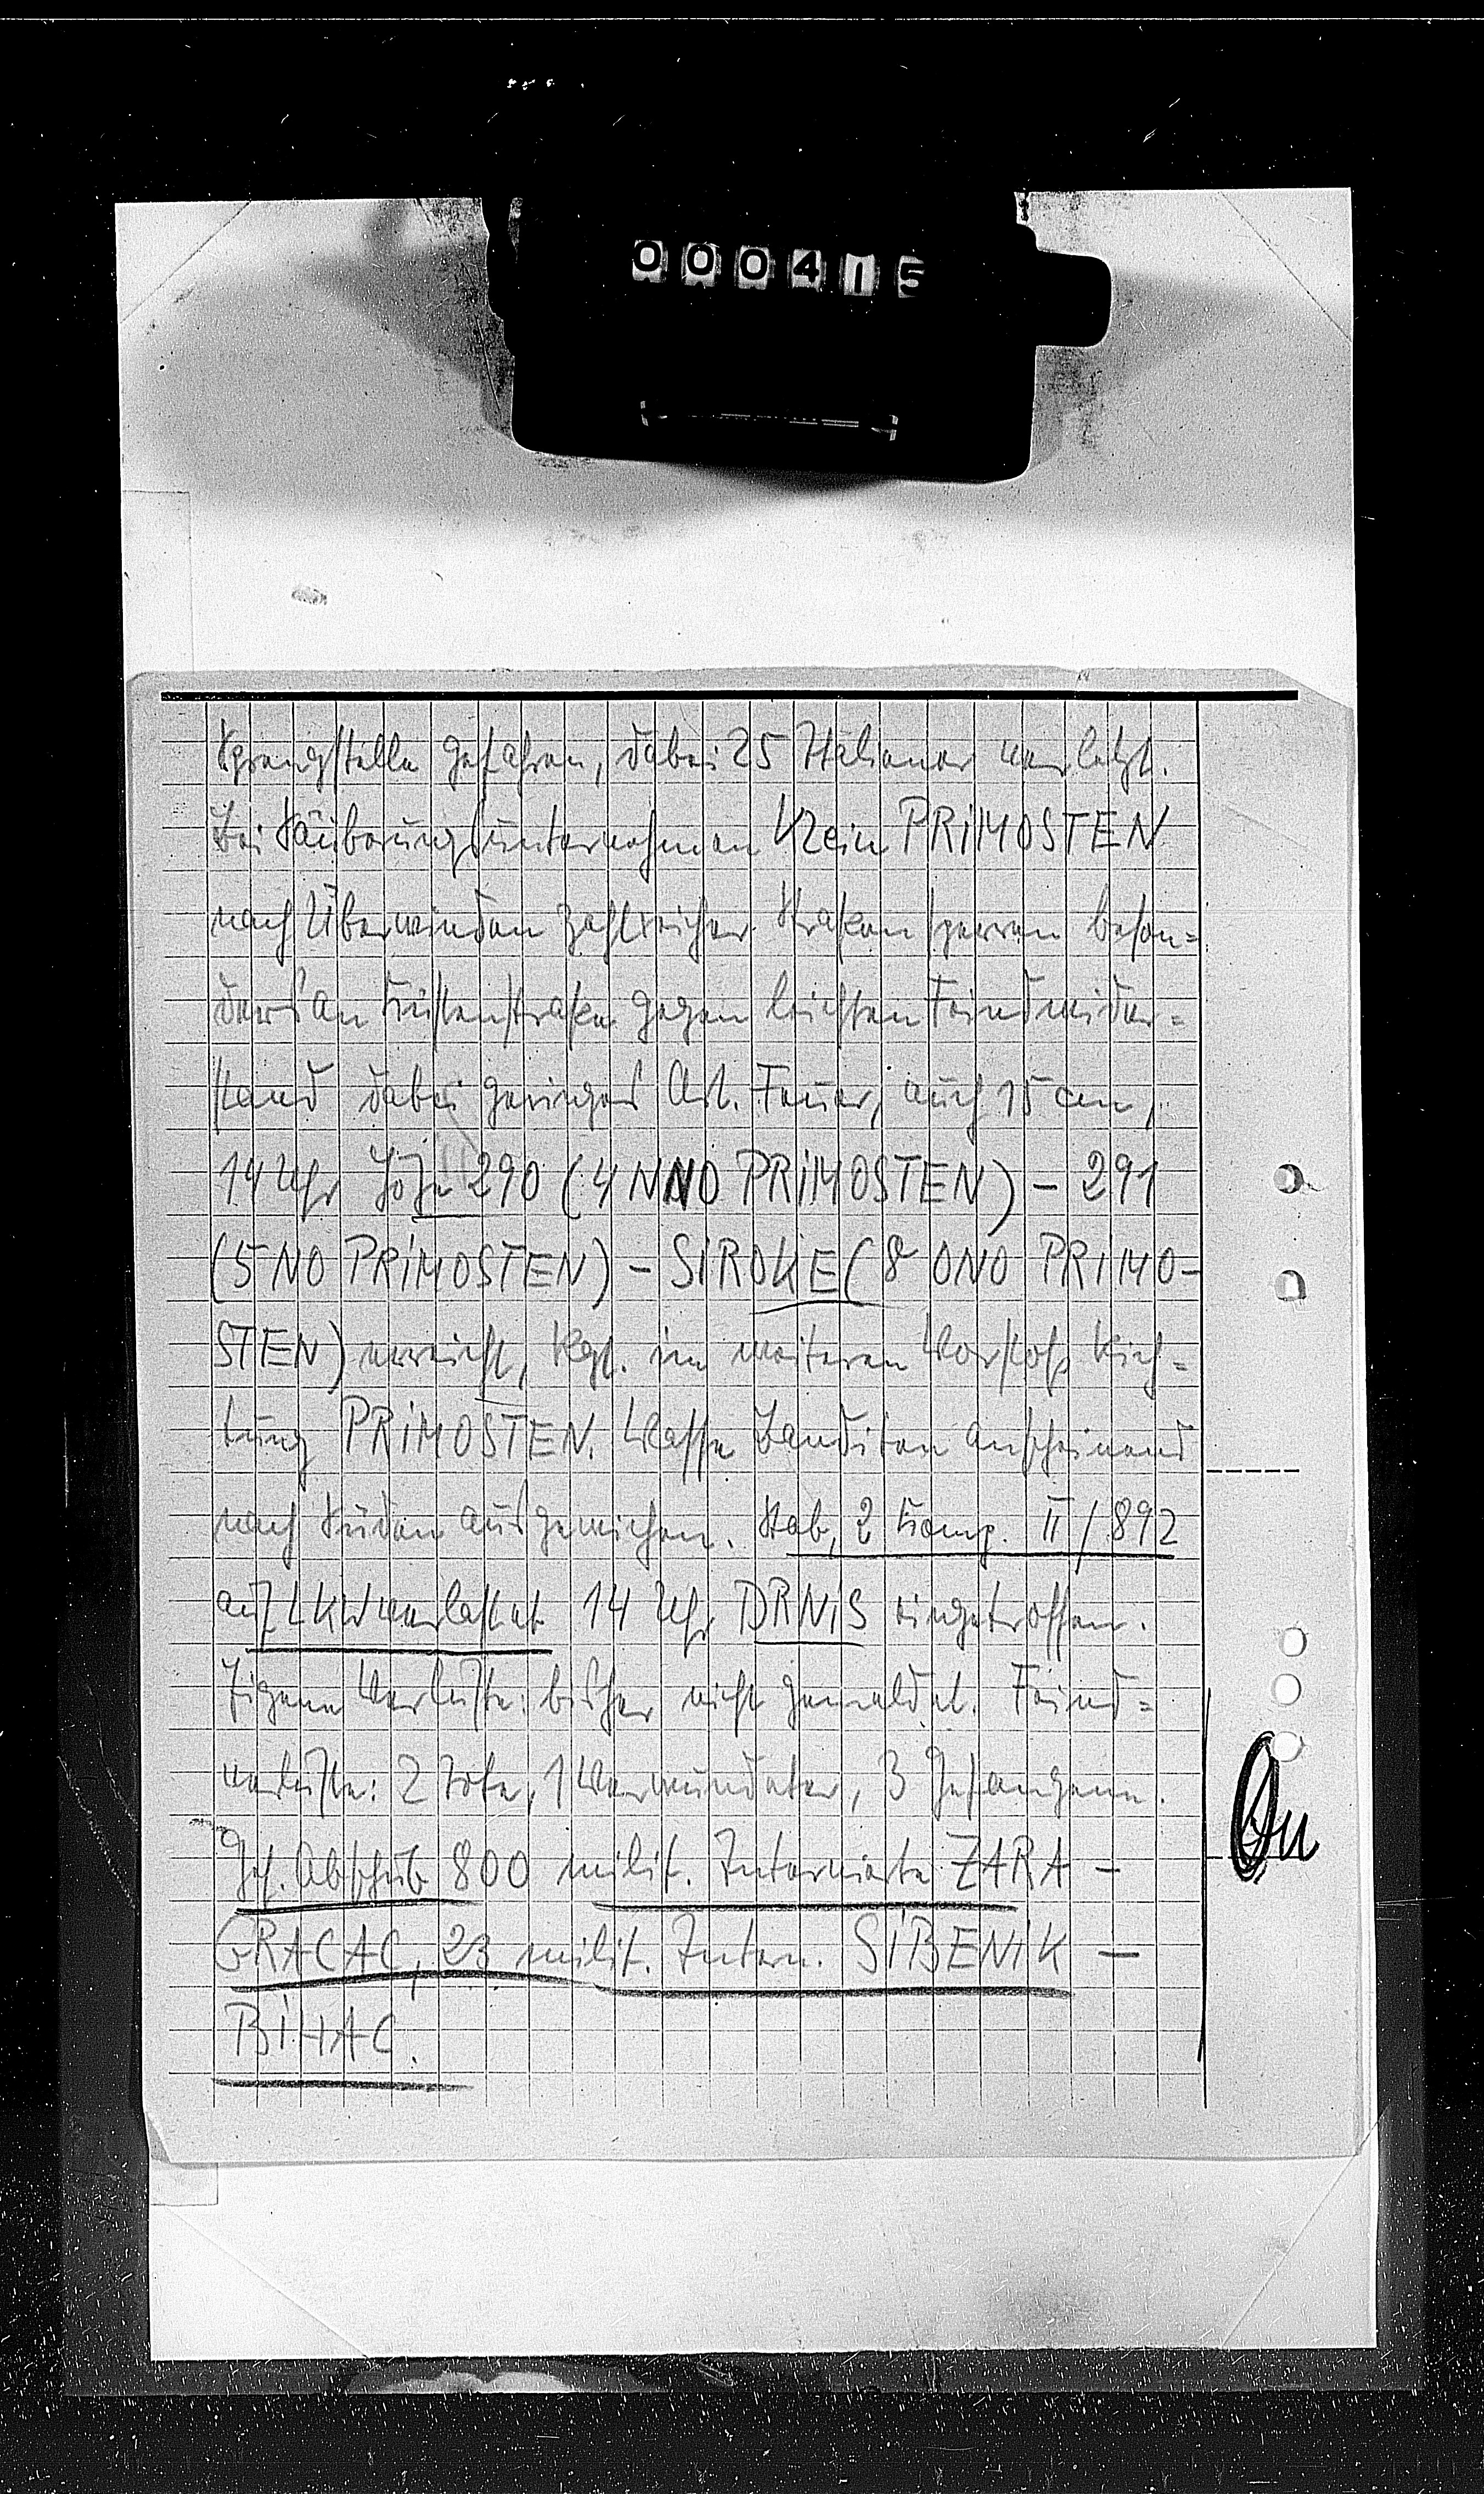 000415
Sprengstelle gefahren, dabei 25 Italiener verletzt.
Bei Säuberungsunternehmen Klein PRIMOSTEN
nach Überwinden zahlreicher Straßensperren beson=
ders an Küstenstraße gegen leichten Feindwider=
stand dabei geringes Art. Feuer, auch 15 cm,
14 Uhr Höhe 290 (4 NNO PRIMOSTEN) - 291
(5 NO PRIMOSTEN) - SIROKE (8 ONO PRIMO-
STEN) erreicht, Rgt. im weiteren Vorstoß Rich=
tung PRIMOSTEN. Masse Banditen anscheinend
nach Süden ausgewichen. Stab, 2 Komp. II/892
auf LKW verlastet 14 Uhr DRNIS eingetroffen.
Eigene Verluste: bisher nicht gemeldet. Feind=
verluste: 2 Tote, 1 Verwundeter, 3 Gefangene.
Gef. Abschub 800 milit. Internierte ZARA -
GRACAC, 23 milit. Intern. SIBENIK -
BIHAC.